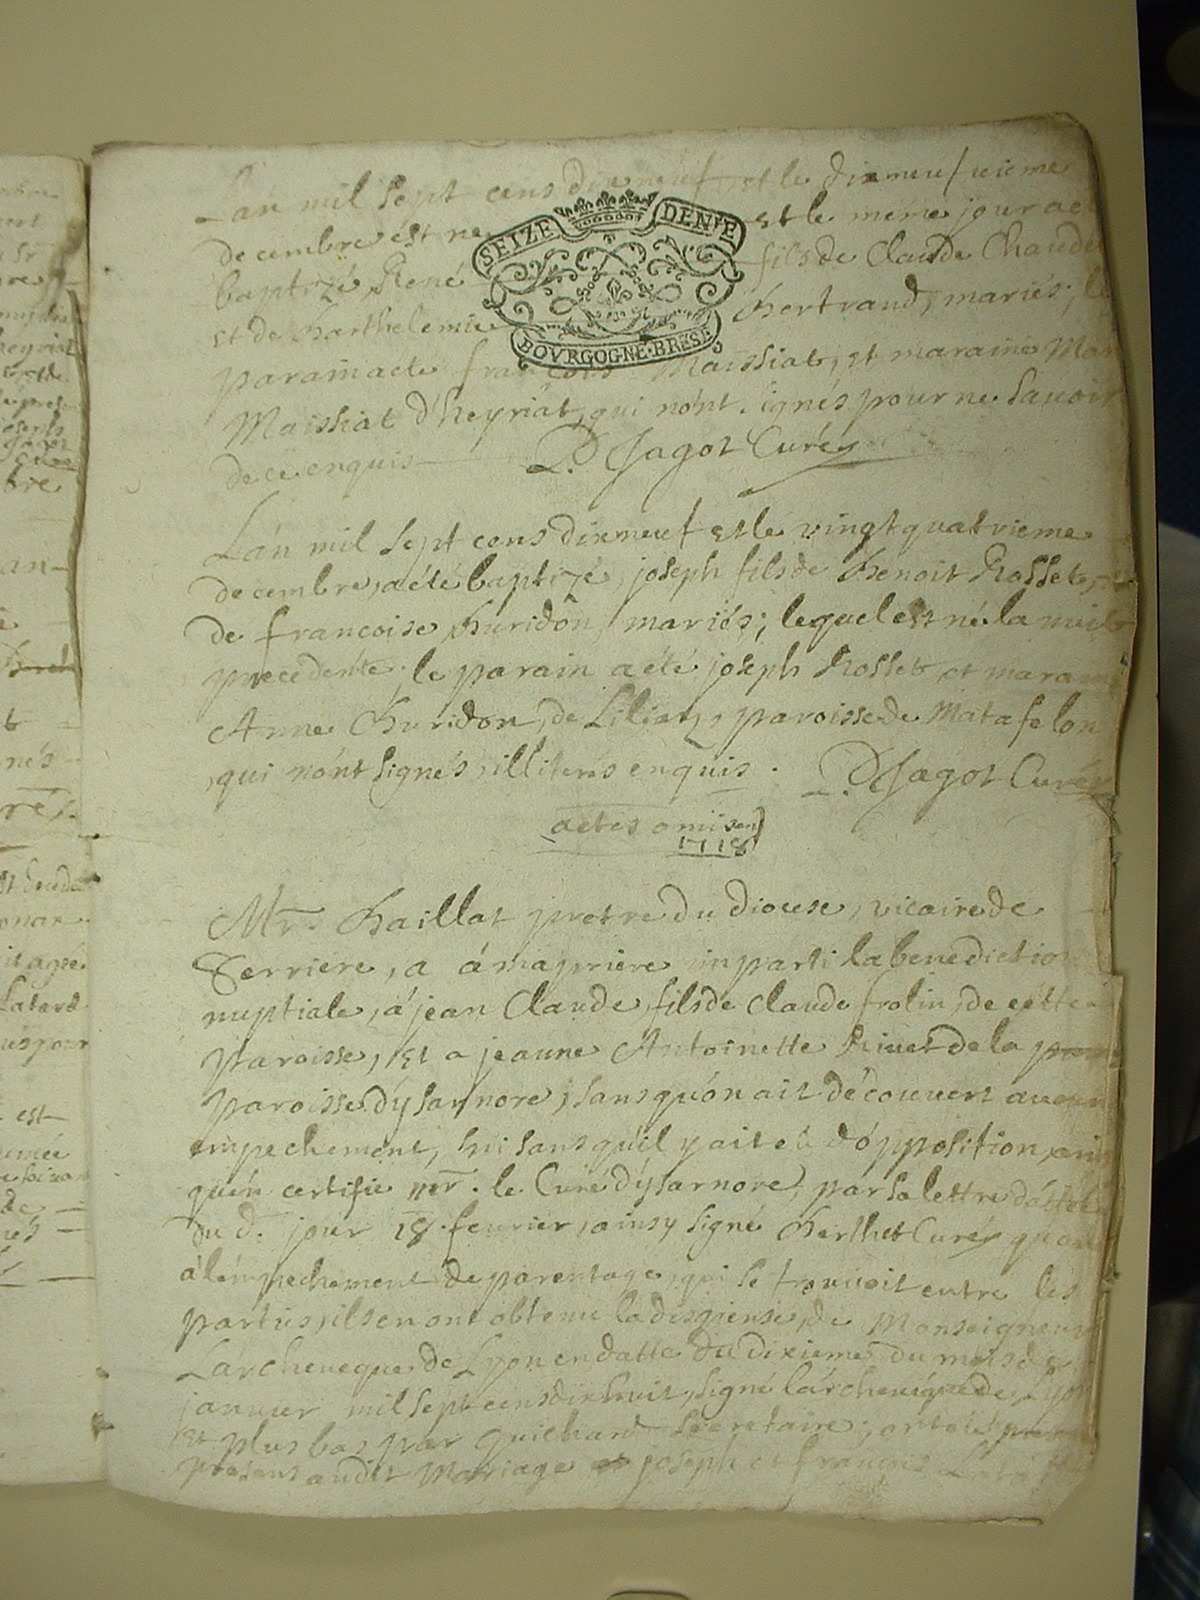 L'an mil sept cens dixneuf, et le dixneufvieme
decembre est né et le même jour a été
SEIZE DEN.E
BOVRGOGNE·BRESE
baptizé René fils de Claude Chaude
et de Barthelemie Bertrand, mariés; le
parain a eté françois Maissiat, et maraine Mar
Maissiat d'heyriat, qui n'ont signés pour ne savoir
de ce enquis D. Jagot Curé
L'an mil sept cens dixneuf et le vingt quatrieme
decembre, a été baptizé, joseph fils de Benoit Rosset,
de francoise Buridon, mariés; lequel est né la nuit
precedente; le parain a été joseph Rosset et marai
Anne Buridon, de Liliaz, paroisse de Matafelon
qui n'ont signés, illiterés enquis. D. Jagot Curé
actes omis en
1718
Mr. Baillat pretre du diocese, vicaire de
Serriere, a á magnriere imparti la benediction
nuptiale, á jean Claude, fils de claude frolin, de cette
Paroisse, Et a jeanne Antoinette Rivet de la
paroisse d'ysarnore, sans qu'on ait découvert aucun
empechement, ni sans qu'il y ait eu d'opposition, ain
qu'en certifie mr. le Curé d'ysarnore, par sa lettre
du d. jour 18 fevrier, ainsy signé Berthet Curé, quan
á l'empechement de parentage, qui se trouvoit entre les
parties, ils en ont obtenu la dispense, de Monseigneur
L'archeveque de Lyon en datte du dixieme du mois de
janvier mil sept cens dixhuit, signé l'archevéque de Lyon
Et plus bas par Guichard secretaire;
presens audit Mariage joseph et françois